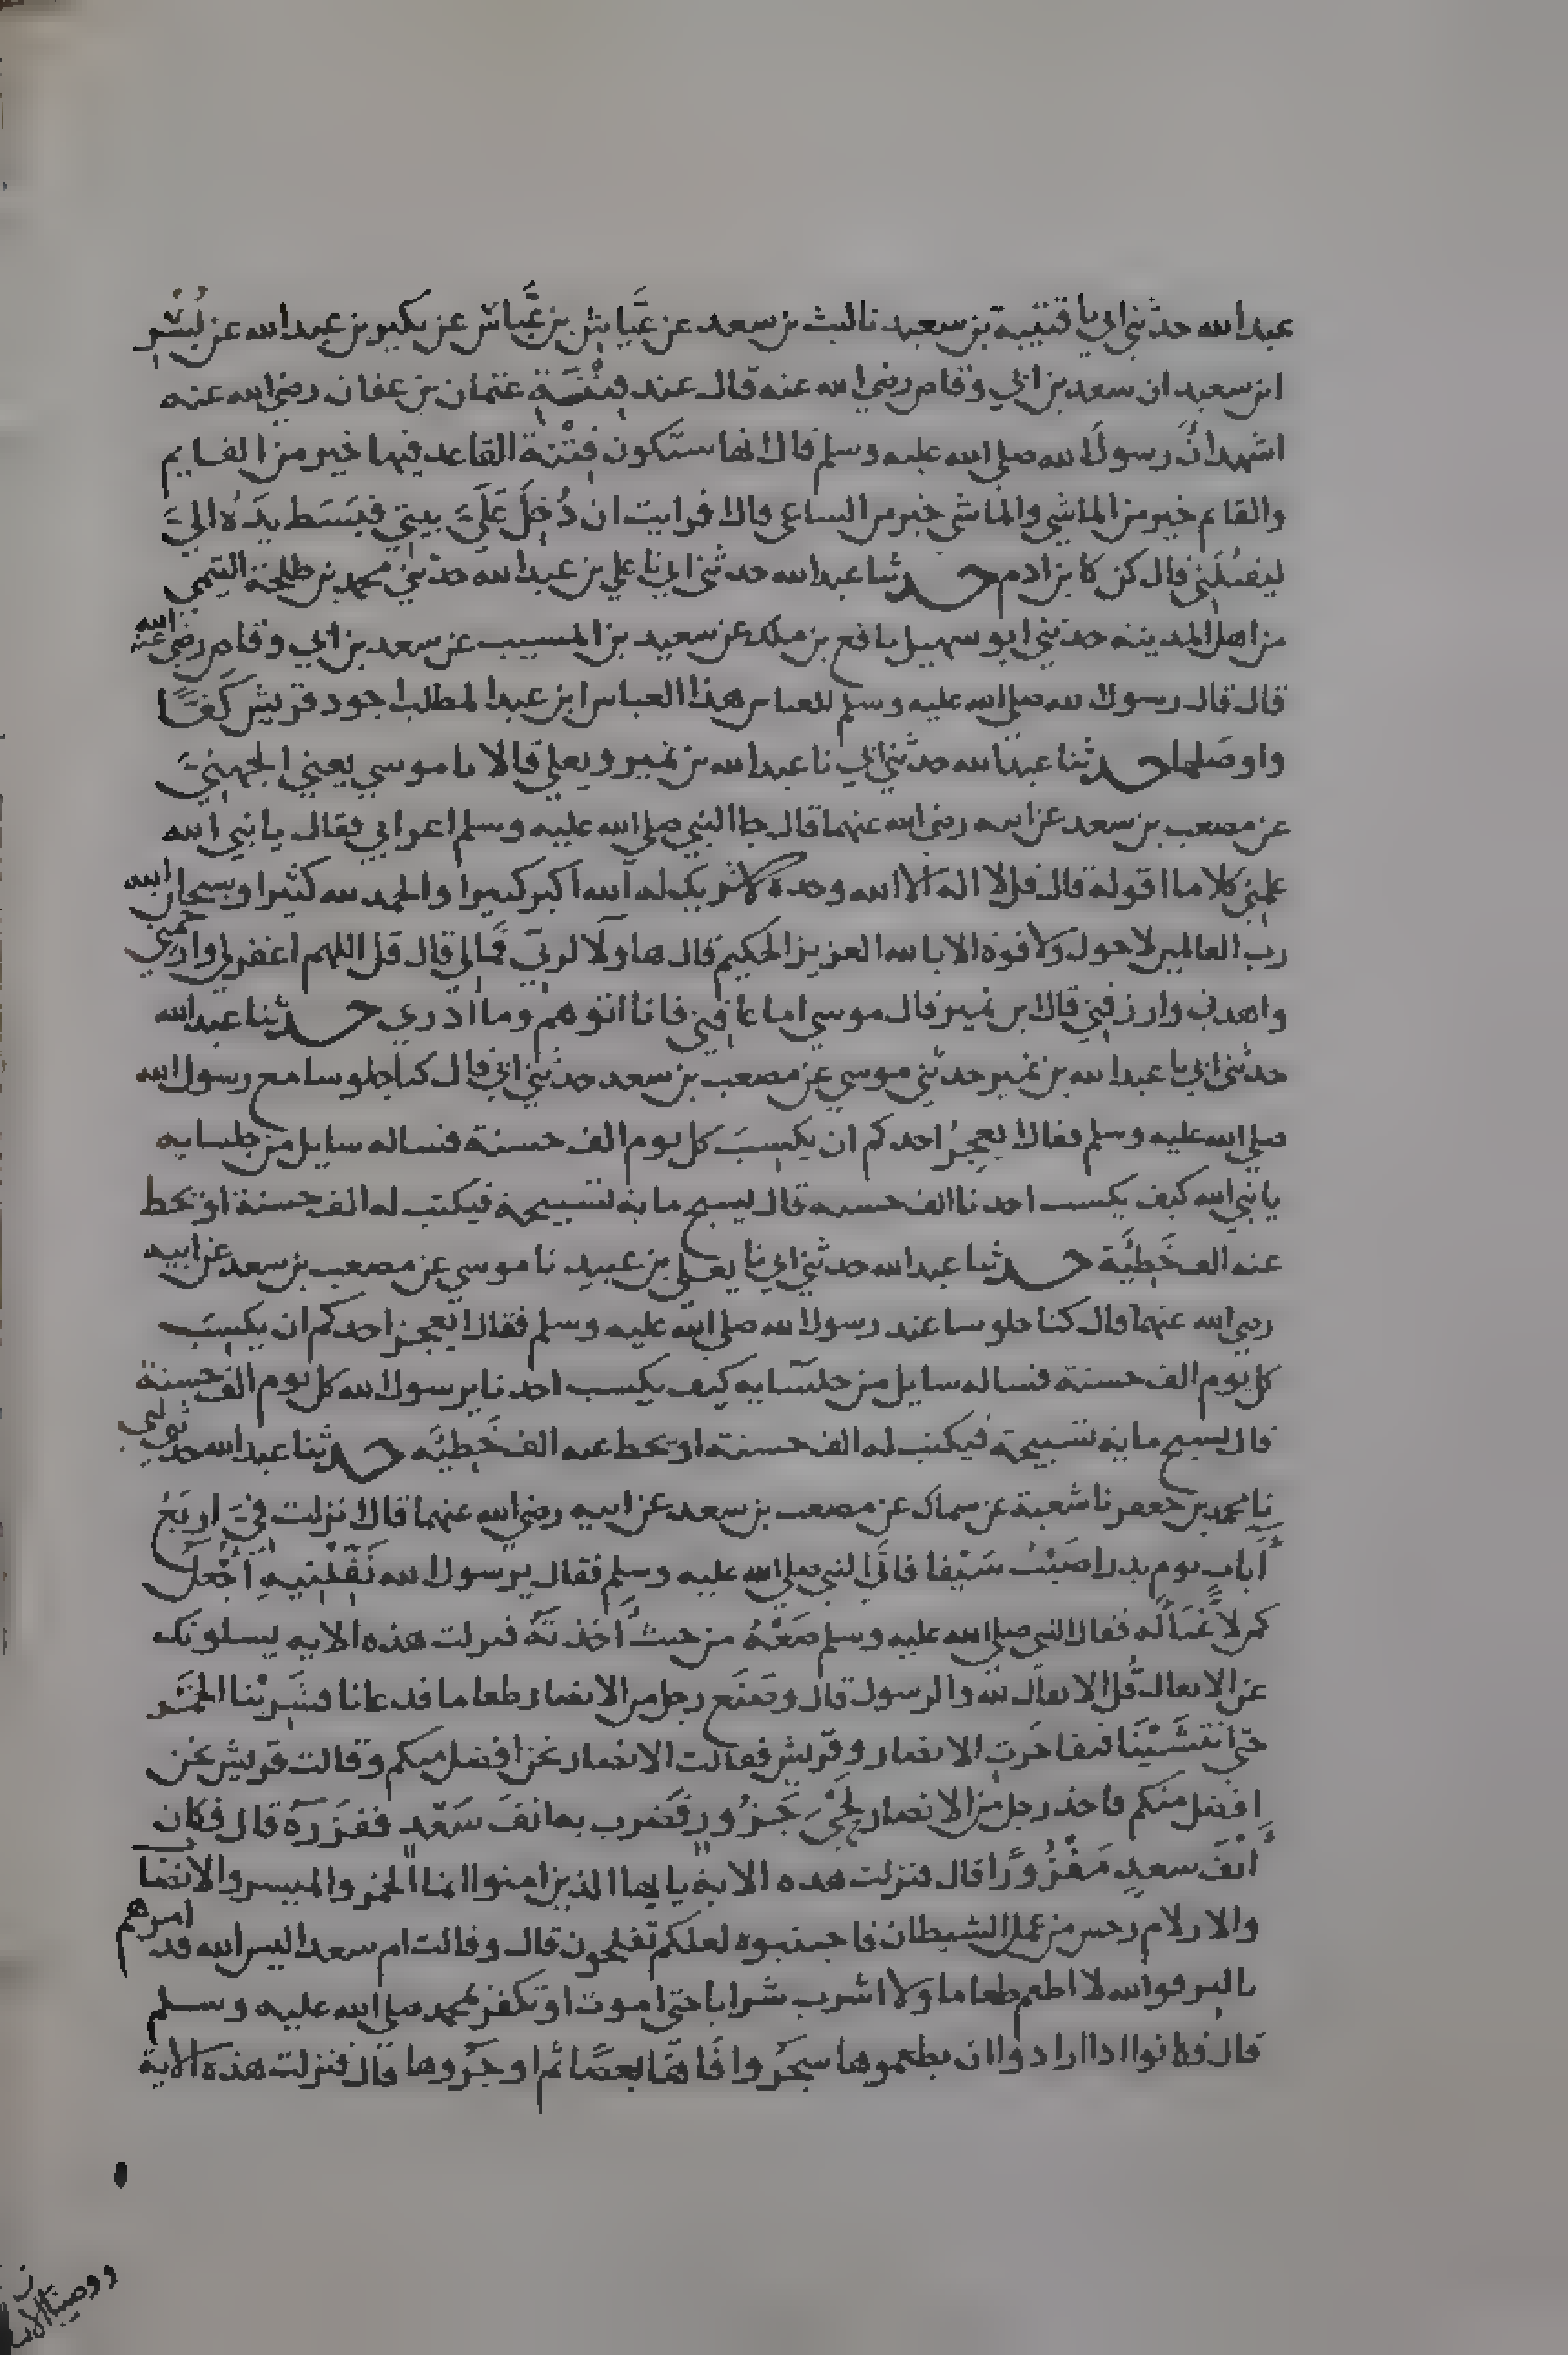 عبد الله حدثني ابي نا قتيبة بن سعيد نا ليث بن سعد عن عَيَّاش بن عَبَّاس عن بكير بن عبد الله عن بُسْر
ابن سعيد ان سعد بن ابي وقاص رضي الله عنه قال عند فِتْنَةِ عثمان بن عفان رضي الله عنه
اشهد انَّ رسول الله صلى الله عليه وسلم قال انها ستكون فِتْنَة القاعد فيها خير من القايم
والقايم خير من الماشي والماشي خير من الساعي قال افرايت ان دُخِلَ عَلَيَّ بيتي فبَسَط يدَهُ اليَّ
ليقتُلَني قال كن كابن ادم حدثنا عبد الله حدثني ابي نا علي بن عبد الله حدثني محمد بن طلحة التيمي
من اهل المدينة حدثني ابو سهيل نافع بن ملك عن سعيد بن المسيب عن سعد بن ابي وقاص رضي الله عنه
قال قال رسول الله صلى الله عليه وسلم للعباس هذا العباس ابن عبد المطلب اجود قريش كَفًّا
واوصَلها حدثنا عبد الله حدثني ابي نا عبد الله بن نمير ويعلى قالا نا موسي يعني الجهنيَّ
عن مصعب بن سعد عن ابيه رضي الله عنهما قال جا النبي صلى الله عليه وسلم اعرابي فقال يا نبي الله
علمني كلاما اقوله قال قل لا اله الا الله وحده لا شريك له الله اكبر كبيرا والحمد لله كثيرا وسبحان الله
رب العالمين لا حول ولا قوة الا بالله العزيز الحكيم قال هاولا لربي فَمَا لي قال قل اللهم اغفر لي وارحمني
واهدني وارزقني قال ابن نمير قال موسي اما عافني فانا اتوهم وما ادري حدثنا عبد الله
حدثني ابي نا عبد الله بن نمير حدثني موسي عن مصعب بن سعد حدثني ابي قال كنا جلوسا مع رسول الله
صلى الله عليه وسلم فقال ايعجِزُ احدكم ان يكسِبَ كل يوم الف حسنة فساله سايل من جلسايه
يا نبي الله كيف يكسب احدنا الف حسنة قال يسبح ماية تسبيحة فيكتب له الف حسنة او تحط
عنه الف خَطِيَّة حدثنا عبد الله حدثني ابي نا يعلى بن عبيد نا موسي عن مصعب بن سعد عن ابيه
رضي الله عنهما قال كنا جلوسا عند رسول الله صلى الله عليه وسلم فقال ايعجز احدكم ان يكسِبَ
كل يوم الف حسنة فساله سايل من جلسَايه كيف يكسب احدنا يرسول الله كل يوم الف حسنة
قال يسبح ماية تسبيحة فيكتب له الف حسنة او تحط عنه الف خَطِيَّه حدثنا عبد الله حدثني ابي
نا محمد بن جعفر نا شعبة عن سماك عن مصعب بن سعد عن ابيه رضي الله عنهما قال انزلت فيَّ اربَعُ
آيات يوم بدر اصَبْتُ سَيْفا فاتَي النبي صلى الله عليه وسلم فقال يرسول الله نَفِّلْنيهِ اَجُعَلُ
كمن لا غَنَا لَه فقال النبي صلى الله عليه وسلم ضَعْهُ من حيثُ اَخَذتَهُ فنزلت هذه الايه يسلونك
عن الانفال قُلِ الانفال لله والرسول قال وصَنَع رجل من الانصار طعاما فدعانا فشَرِبْنا الخَمْر
حتي انتَشَيْنَا فتفاخَرت الانصار وقريش فقالت الانصار نحن افضل منكم وقالت قريش نحن
افضل منكم فاخذ رجل من الانصار لَحْيَ جَزُور فضَرب به انفَ سَعْدٍ ففَزَرَهُ قال فكان
اَنْفُ سعدٍ مَفْزُورًا قال فنزلت هده الاية يا يها الذين امنوا انما الخمر والميسر والانصا
والازلام رجس من عمل الشيطان فاجتنبوه لعلكم تفلحون قال وقالت ام سعد اليس الله قد امرهم
بالبر فوالله لا اطعم طعاما ولا اشرب شرابا حتي اموت او تكفر بمحمد صلى الله عليه وسلم
قال فكانوا اذا ارادوا ان يطعموها شجَرُوا فَاهَا بعصًا ثم اوجَرُوها قال فنزلت هذه الاية
ووصينا الانسان